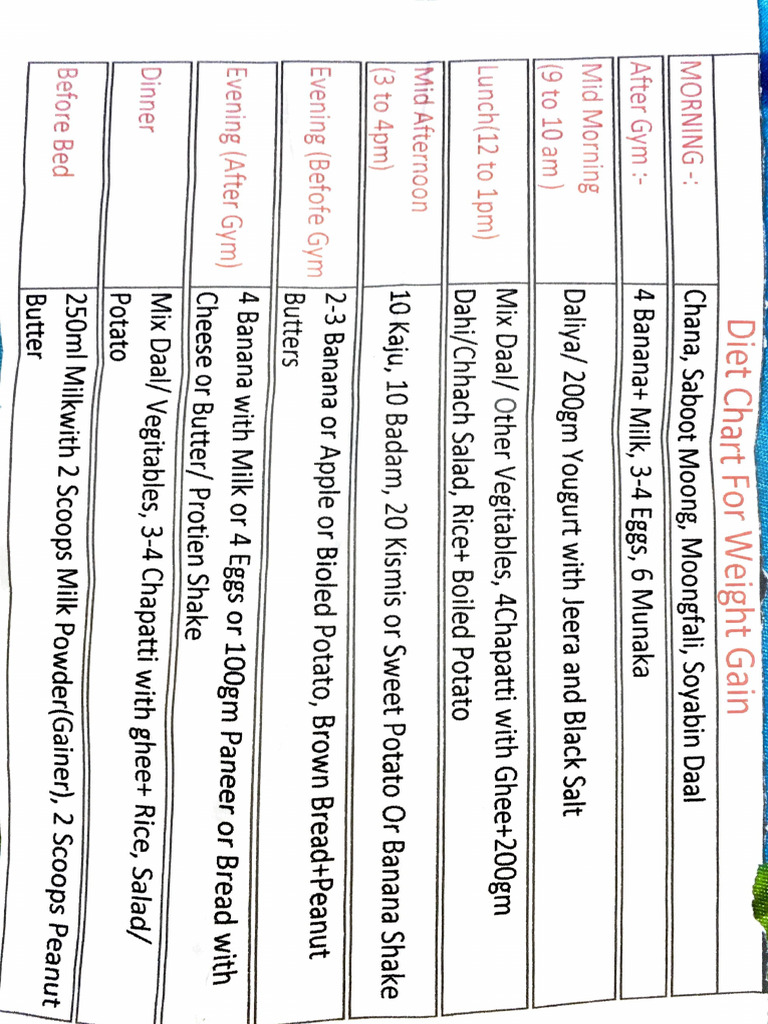 Diet Chart For Weight Gain
MORNING -: Chana, Saboot Moong, Moongfali, Soyabin Daal
After Gym :- 4 Banana+ Milk, 3-4 Eggs, 6 Munaka
Mid Morning
(9 to 10 am )
Daliya/ 200gm Yougurt with Jeera and Black Salt
Lunch(12 to 1pm)
Mix Daal/ Other Vegitables, 4Chapatti with Ghee+200gm
Dahi/Chhach Salad, Rice+ Boiled Potato
Mid Afternoon
(3 to 4pm)
10 Kaju, 10 Badam, 20 Kismis or Sweet Potato Or Banana Shake
Evening (Befofe Gym
2-3 Banana or Apple or Bioled Potato, Brown Bread+Peanut
Butters
Evening (After Gym)
4 Banana with Milk or 4 Eggs or 100gm Paneer or Bread with
Cheese or Butter/ Protien Shake
Dinner
Mix Daal/ Vegitables, 3-4 Chapatti with ghee+ Rice, Salad/
Potato
Before Bed
250ml Milkwith 2 Scoops Milk Powder(Gainer), 2 Scoops Peanut
Butter